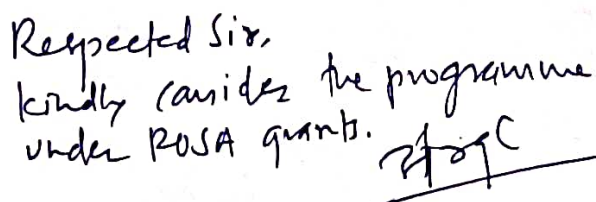 Respected Sir,
kindly consider the programme
under ROSA grants.